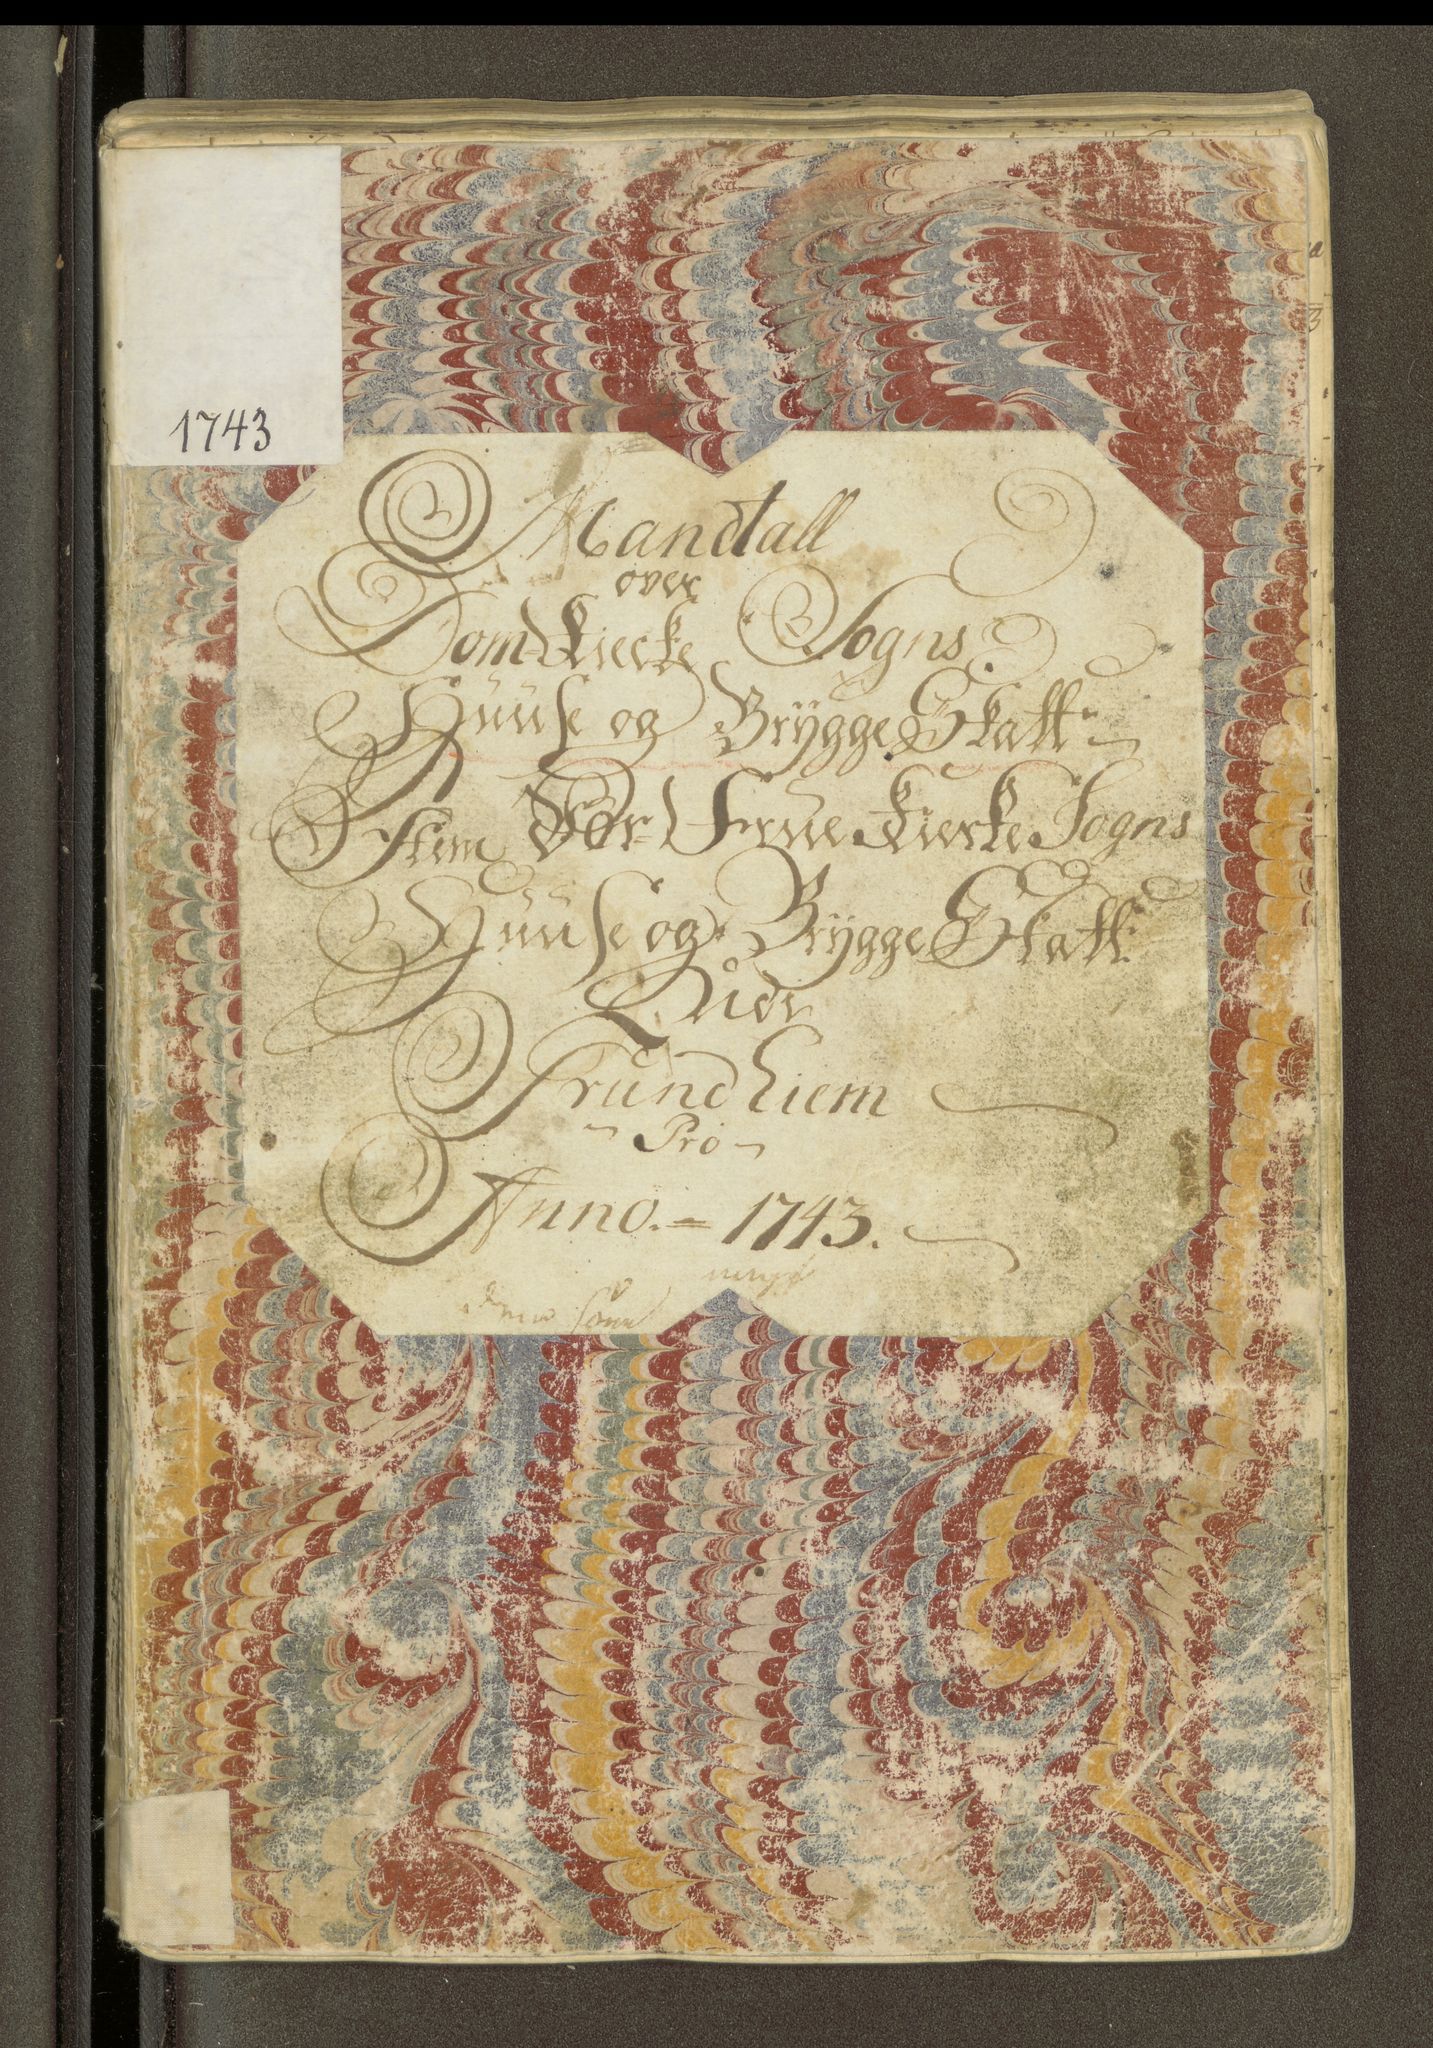 1743
Mandtall
over
Dom-Kierke Sogns
Huuse og Brygge Skatt
Item Vor Frue Kierke Sogns
Huuse og Brygge Skatt
Trundhiem
Pro
Anno. = 1743.